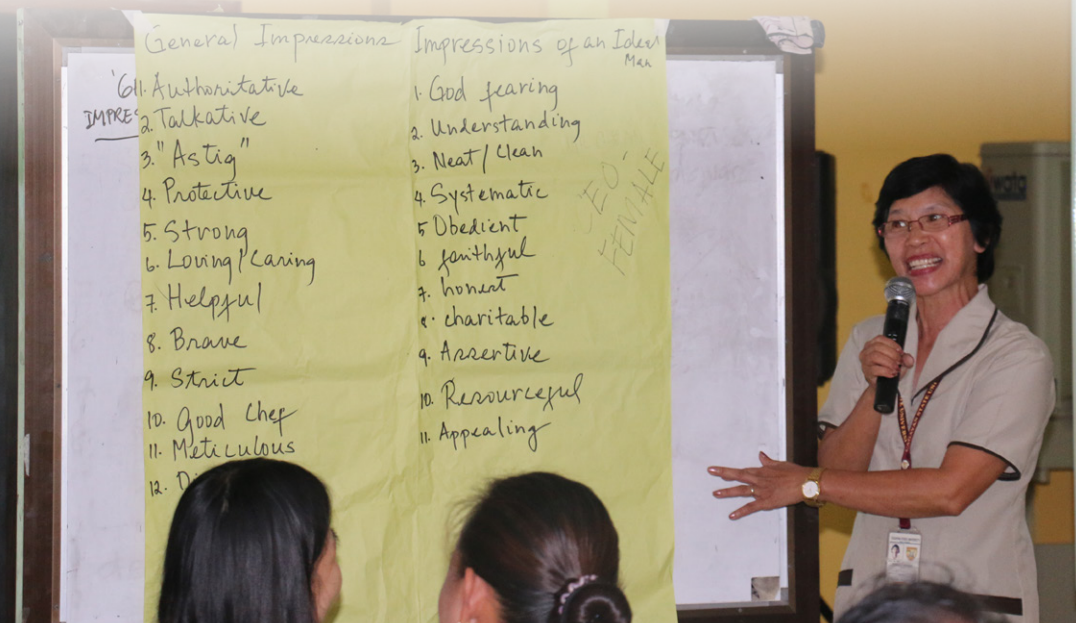 General Impressions
1. Authoritative
2. Talkative
3. "Astig"
4. Protective
5. Strong
6. Loving/Caring
7. Helpful
8. Brave
9. Strict
10. Good Chef
11. Meticulous
12.
Impressions of an Ideal
Man
1. God fearing
2. Understanding
3. Neat/Clean
4. Systematic
5 Obedient
6 faithful
7. honest
8. charitable
9. Assertive
10. Resourceful
11. Appealing
FEMALE
IMPRES